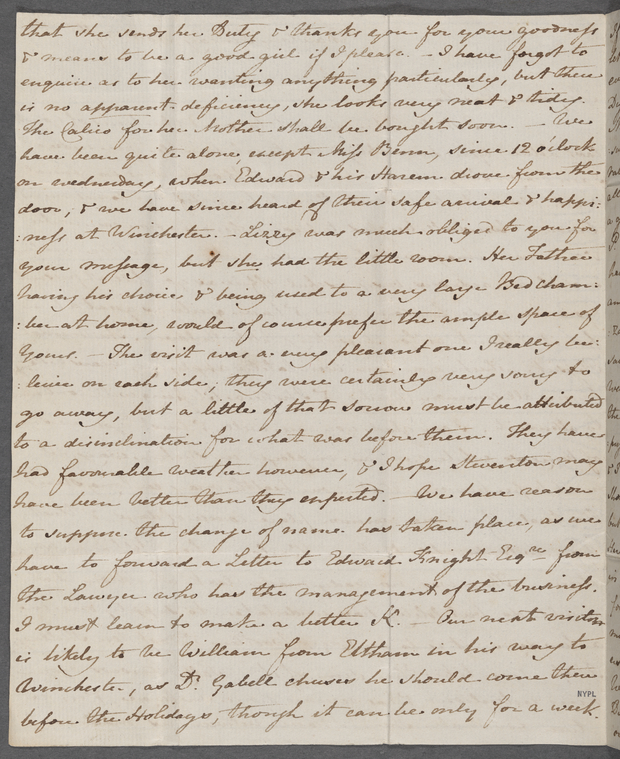 that she sends her Duty & thanks you for your goodness
& means to be a good girl if I please. – I have forgot to
enquire as to her wanting anything particularly, but there
is no apparent deficiency, she looks very neat & tidy.
The Calico for her Mother shall be bought soon. – We
have been quite alone, except Miss Benn, since 12 o'clock
on wednesday, when Edward & his Harem drove from the
door; & we have since heard of their safe arrival & happi-
:ness at Winchester. – Lizzy was much obliged to you for
your message, but she had the little room. Her Father
having his choice & being used to a very large Bed cham-
:ber at home, would of course prefer the ample space of
Yours. – The visit was a very pleasant one I really be-
:leive on each side; they were certainly very sorry to
go away, but a little of that sorrow must be attributed
to a disinclination for what was before them. They have
had favourable weather however, & I hope Steventon may
have been better than they expected. – We have reason
to suppose the change of name has taken place, as we
have to forward a Letter to Edward Knight Esqre from
the Lawyer who has the management of the business.
I must learn to make a better K. – Our next visitor
is likely to be William from Eltham in his way to
Winchester, as Dr. Gabell chuses he should come then
before the Holidays, though it can be only for a week.
NYPL